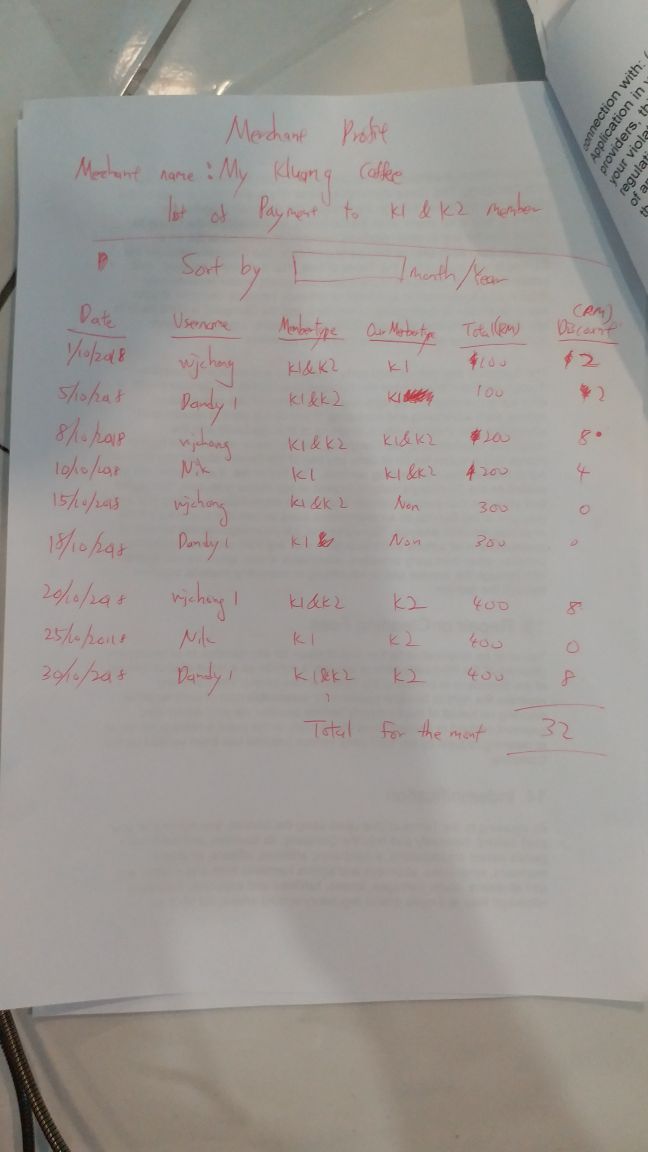 Merchant Profile
Merchant name : My Kluang Coffee
list of Payment to K1 & K2 member
Sort by month/Year
Date Username Membertype Our Membertype Total(RM) (RM) Discount
1/10/2018 wjchong K1&K2 K1 $100 $2
5/10/2018 Dandy 1 K1&K2 K1 100 $2
8/10/2018 wjchong K1&K2 K1&K2 $200 8
10/10/2018 Nik K1 K1&K2 $200 4
15/10/2018 wjchong K1&K2 Non 300 0
18/10/2018 Dandy 1 K1 & Non 300 0
20/10/2018 wjchong 1 K1&K2 K2 400 8
25/10/2018 Nik K1 K2 400 0
30/10/2018 Dandy 1 K1&K2 K2 400 8
Total for the mont 32
onnection with: (
Application in v
providers, th
your violat
regulati
of ar
14. Indemnification